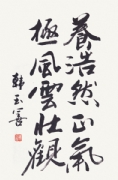 養浩然正氣
極風雲壯觀
韓玉